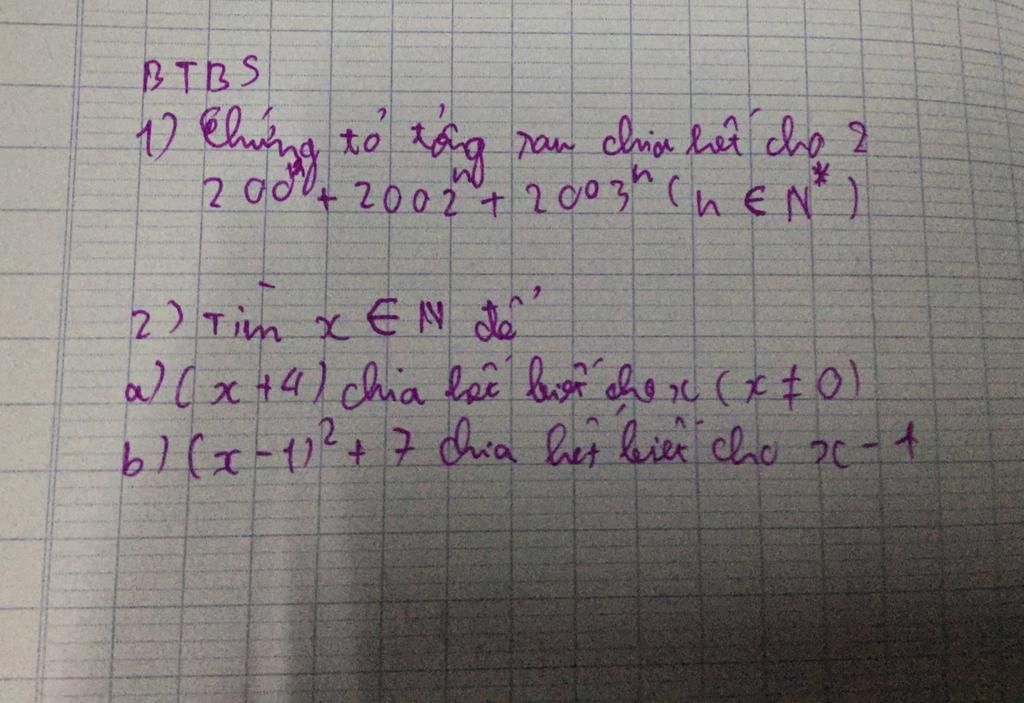 BTBS
1) Chứng tỏ tổng sau chia hết cho 2
+ 2002ⁿ + 2003ⁿ (n ∈ N*)
2) Tìm x ∈ N để
a) (x + 4) chia hết cho x (x ≠ 0)
b) (x - 1)² + 7 chia hết biết cho x - 1